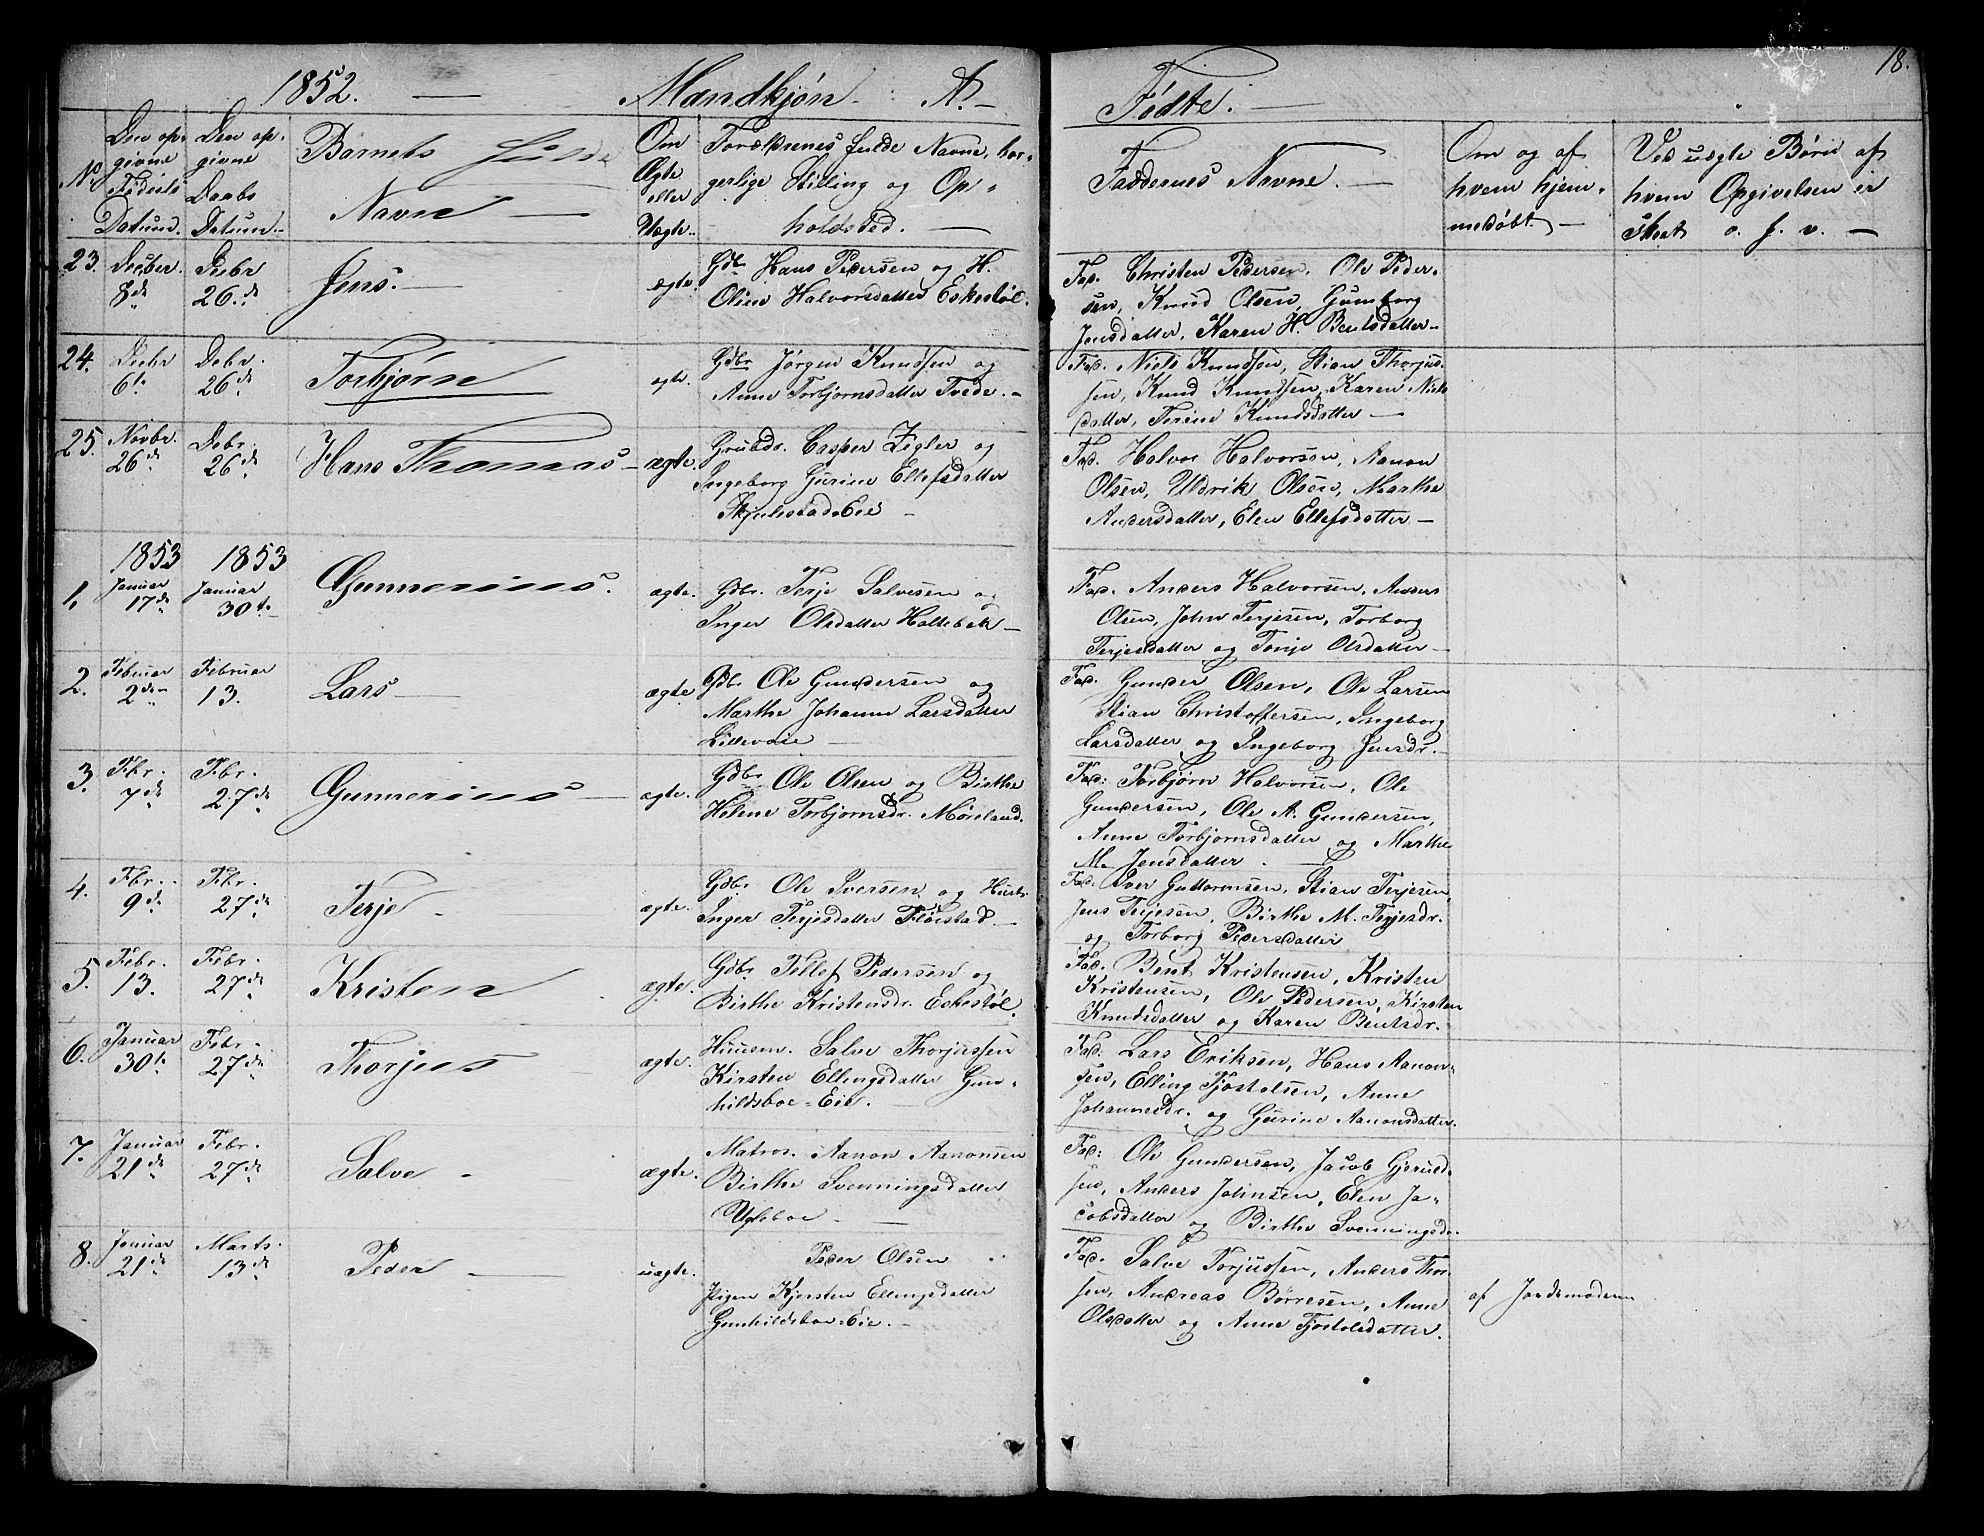 1852. — Mandkjøn. A. —
Fødte. —
18.
No
Den op-
givne
Fødsels
Datum.
Den op-
givne
Daabs
Datum.
Barnets fulde
Navn —
Om
Ægte
eller
Uægte.
Forældrenes fulde Navne, bor-
gerlige Stilling og Op-
holdsted. —
Faddernes Navne. —
Om og af
hvem hjem-
medøbt. —
Ved uægte Børn af
hvem Opgivelsen er
skeet o. s. v. —
23. Decber 8de
Decbr 26.de
Jens. —
ægte.
Gdbr. Hans Pedersen og H.
Oline Halvorsdatter Eskestøl.
Fad. Christen Pedersen, Ole Peder-
sen, Knud Olsen, Gunborg
Jensdatter, Karen H. Bentsdatter —
24. Decbr 6te
Debr. 26de
Torbjørn
ægte.
Gdbr Jörgen Knudsen og
Anne Torbjornsdatter Tvede. —
Fad. Niels Knudsen, Stian Thorjus-
sen, Knud Knudsen, Karen Niels
datter, Terine Knudsdatter —
25. Novbr. 26de
Debr. 26de
Hans Thomas —
ægte.
Grubdr. Casper Zigler og
Ingeborg Gurine Ellefsdatter
Skjulestadseie —
Fad. Halvor Halvorsen, Aanon
Olsen, Uldrik Olsen, Marthe
Andersdatter, Elen Ellefsdatter —
1853 1853
1. Januar 17de
Januar 30te
Gunnerius.
ægte.
Gdbr. Terje Salvesen og
Inger Olsdatter Holtebek —
Fad. Anders Halvorsen, Anders
Olsen, John Terjesen, Torborg
Terjesdatter og Tonje Olsdatter —
2. Febuar 2den
Februar 13.
Lars —
ægte
Gdbr. Ole Gundersen og
Marthe Johanne Larsdatter
Lillevaie —
Fad. Gunder Olsen, Ole Larsen
Stian Christoffersen, Ingeborg
Larsdatter og Ingeborg Jensdr. —
3. Fbr. 7de
Fbr. 27de
Gunnerius —
ægte.
Gdbr Ole Olsen og Birthe
Helene Torbjornsdr. Møreland.
Fad: Torbjørn Halvorsen, Ole
Gundersen, Ole A. Gundersen,
Anne Torbjornsdatter og Marthe
M. Jensdatter. —
4. Fbr. 9de
Fbr. 27de
Terje —
ægte.
Gdbr Ole Iversen og Hustr.
Inger Terjesdatter Fløistad —
Fad. Iver Guttormsen, Stian Terjesen,
Jens Terjesen, Birthe M. Terjesdr.
og Torborg Pedersdatter
5. Febr. 13.
Febr. 27de
Kristen
ægte.
Gdbr. Tellef Pedersen og
Birthe Kristensdr. Eskestøl.
Fad. Bent Kristensen, Kristen
Kristensen, Ole Pedersen, Kirsten
Knudsdatter og Karen Bentsdr.
6. Januar 30te
Febr. 27de
Thorjus
ægte.
Huusm. Salve Thorjussen
Kirsten Ellingsdatter Gun-
hildsboe-Eie. —
Fad. Lars Eriksen, Hans Aanon-
sen, Elling Tjostolsen, Anne
Johannesdr. og Gurine Aanonsdatter.
7. Januar 21de
Febr. 27de
Salve —
ægte.
Matros. Aanon Aanonsen
Birthe Svenningsdatter
Ugleboe. —
Fad: Ole Gundersen, Jacob Gjeruld-
sen, Anders Johnsen, Elen Ja-
cobsdatter og Birthe Svenningsdr.
8. Januar 21de
Marts. 13de
Peder —
uægte.
Peder Olsen
Pigen Kjersten Ellingsdatter
Gunhildsboe-Eie. —
Fad. Salve Torjussen, Anders Thor-
sen, Andreas Börresen, Anne
Olsdatter og Anne Tjostolsdatter.
af Jordemoderen